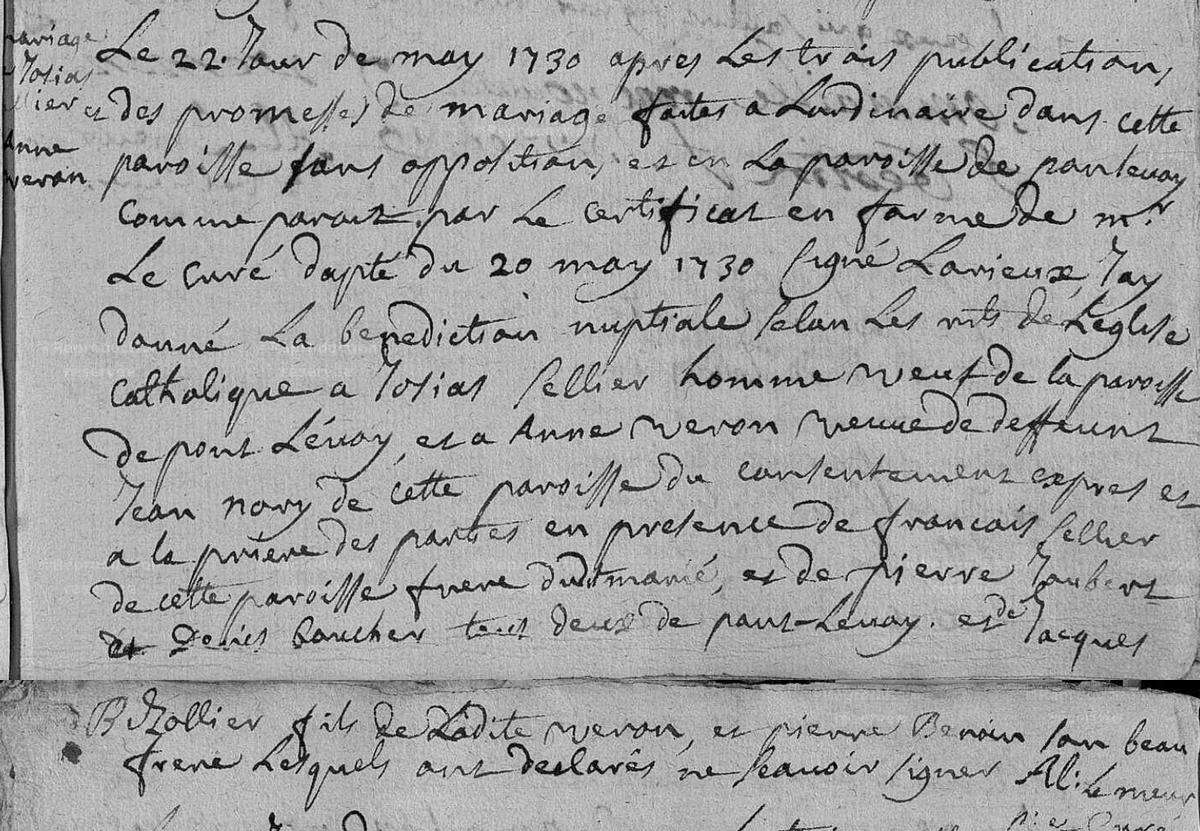 mariage
Josias
llier et
Anne
veron
Le 22. Jour de may 1730 apres Les trois publications
des promesses de mariage faites a Lordinaire dans cette
paroisse sans opposition, et en La paroisse de pontlevoy
comme paroit par Le certificat en forme de mr
Le curé dapté du 20 may 1730 signé Lorieux, Jay
donné La benediction nuptiale selon Les rits de Leglise
catholique a Josias sellier homme veuf de la paroisse
de pont Lévoy, et a Anne veron veuve de deffeunt
Jean nory de cette paroisse du consentement expres et
a la prière des parties en presence de francois sellier
de cette paroisse frere dud marié, et de pierre Joubert
et Denis boucher tout deux de pont-Levoy. et de Jacques
fils de Ladite veron, et pierre Beroin son beau
frere Lesquels ont declarés ne scavoir signer Al: Le meur